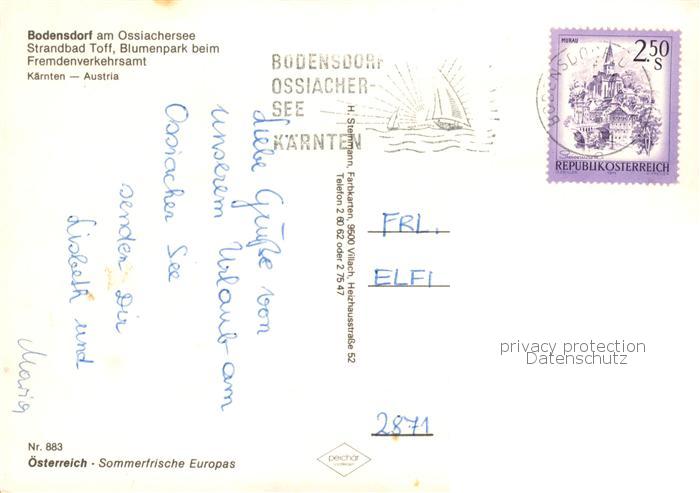 Bodensdorf am Ossiachersee
Strandbad Toff, Blumenpark beim
Fremdenverkehrsamt
Kärnten — Austria
BODENSDORF
OSSIACHER-
SEE
KÄRNTEN
MURAU
2.50
S
REPUBLIK ÖSTERREICH
Liebe Grüße von
unserem Urlaub am
Ossiacher See
senden Dir
Lisbeth und
Maria
H. Steinmann, Farbkarten, 9500 Villach, Heizhausstraße 52
Telefon 2 60 62 oder 2 75 47
FRL.
ELFI
2871
privacy protection
Datenschutz
Nr. 883
Österreich · Sommerfrische Europas